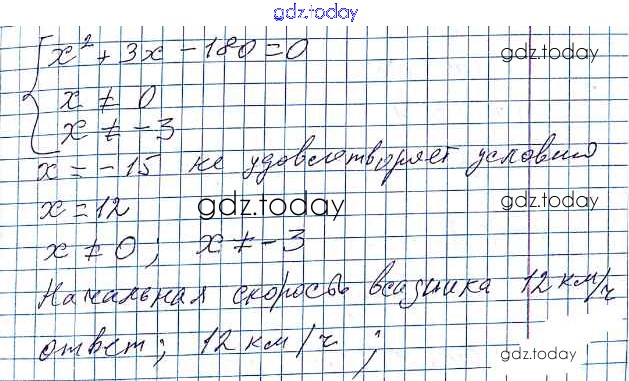 gdz.today
x² + 3x − 180 = 0 gdz.today
x ≠ 0
x ≠ −3
x = −15 не удовлетворяет условию
x = 12 gdz.today gdz.today
x ≠ 0; x ≠ −3
Начальная скорость всадника 12 км/ч
ответ; 12 км/ч;
gdz.today